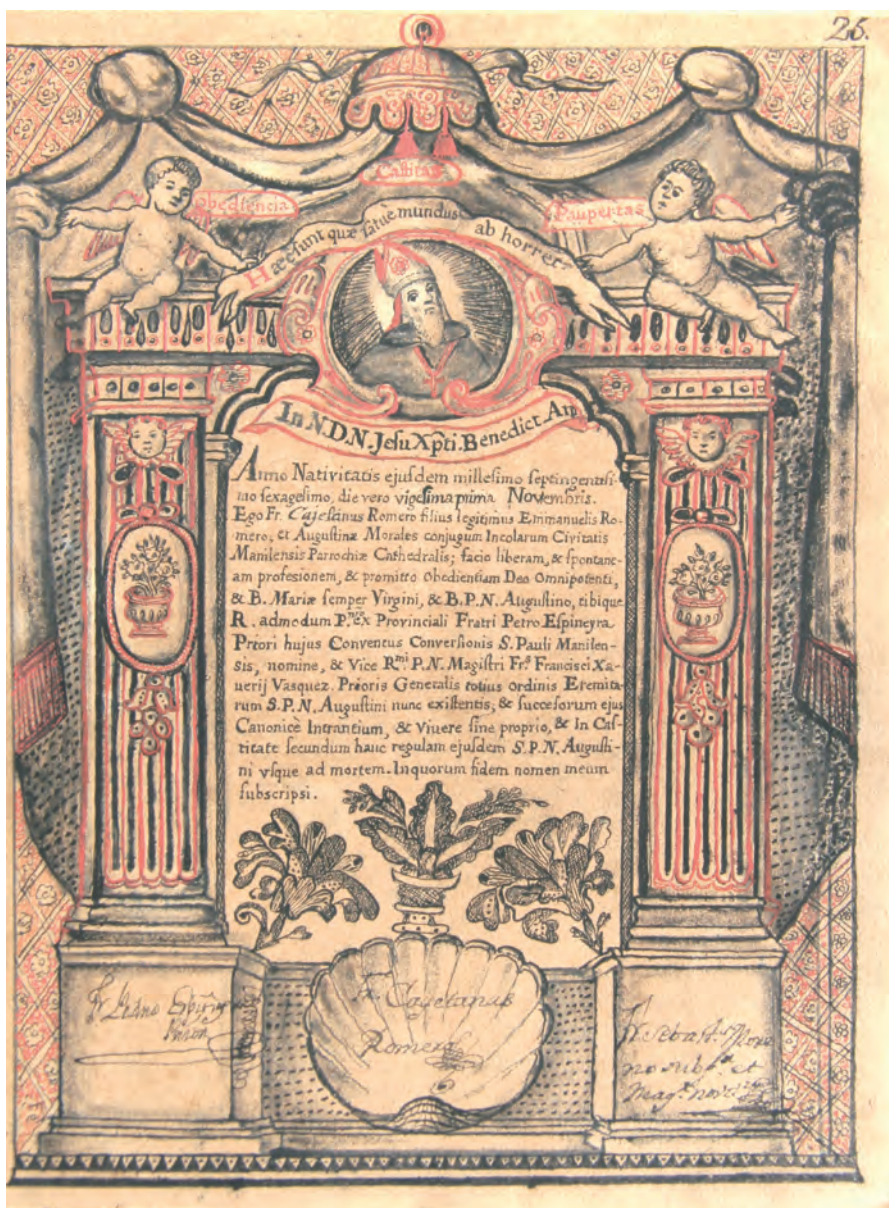 25.
Castitas
Obediencia
Paupertas
Hæc sunt quæ fatuè mundus ab horret
In N.D.N. Jesu Xp̃ti. Benedict. Am
Anno Nativitatis ejusdem millesimo septingentesi-
mo sexagesimo, die vero vigesima prima Novembris.
Ego Fr. Cajesanus Romero filius legitimus Emmanuelis Ro-
mero, et Augustinæ Morales conjugum Incolarum Civitatis
Manilensis Parrochiæ Cathedralis; facio liberam, & spontane-
am profesionem, & promitto Obedientiam Deo Omnipotenti,
& B. Mariæ semper Virgini, & B.P.N. Augustino, tibique
R. admodum P. Ex Provinciali Fratri Petro Espineyra
Priori hujus Conventus Conversionis S. Pauli Manilen-
sis, nomine, & Vice Rmi. P.N. Magistri Frs. Francisci Xa-
verij Vasquez. Prioris Generalis totius ordinis Eremita-
rum S.P.N. Augustini nunc existentis, & succesorum ejus
Canonicè Intrantium, & Vivere sine proprio, & In Cas-
titate secundum hanc regulam ejusdem S.P.N. Augusti-
ni vsque ad mortem. Inquorum fidem nomen meum
subscripsi.
Fr. Cayetanus
Romero
Fr. Sebast. More
no
et
Mag. novi